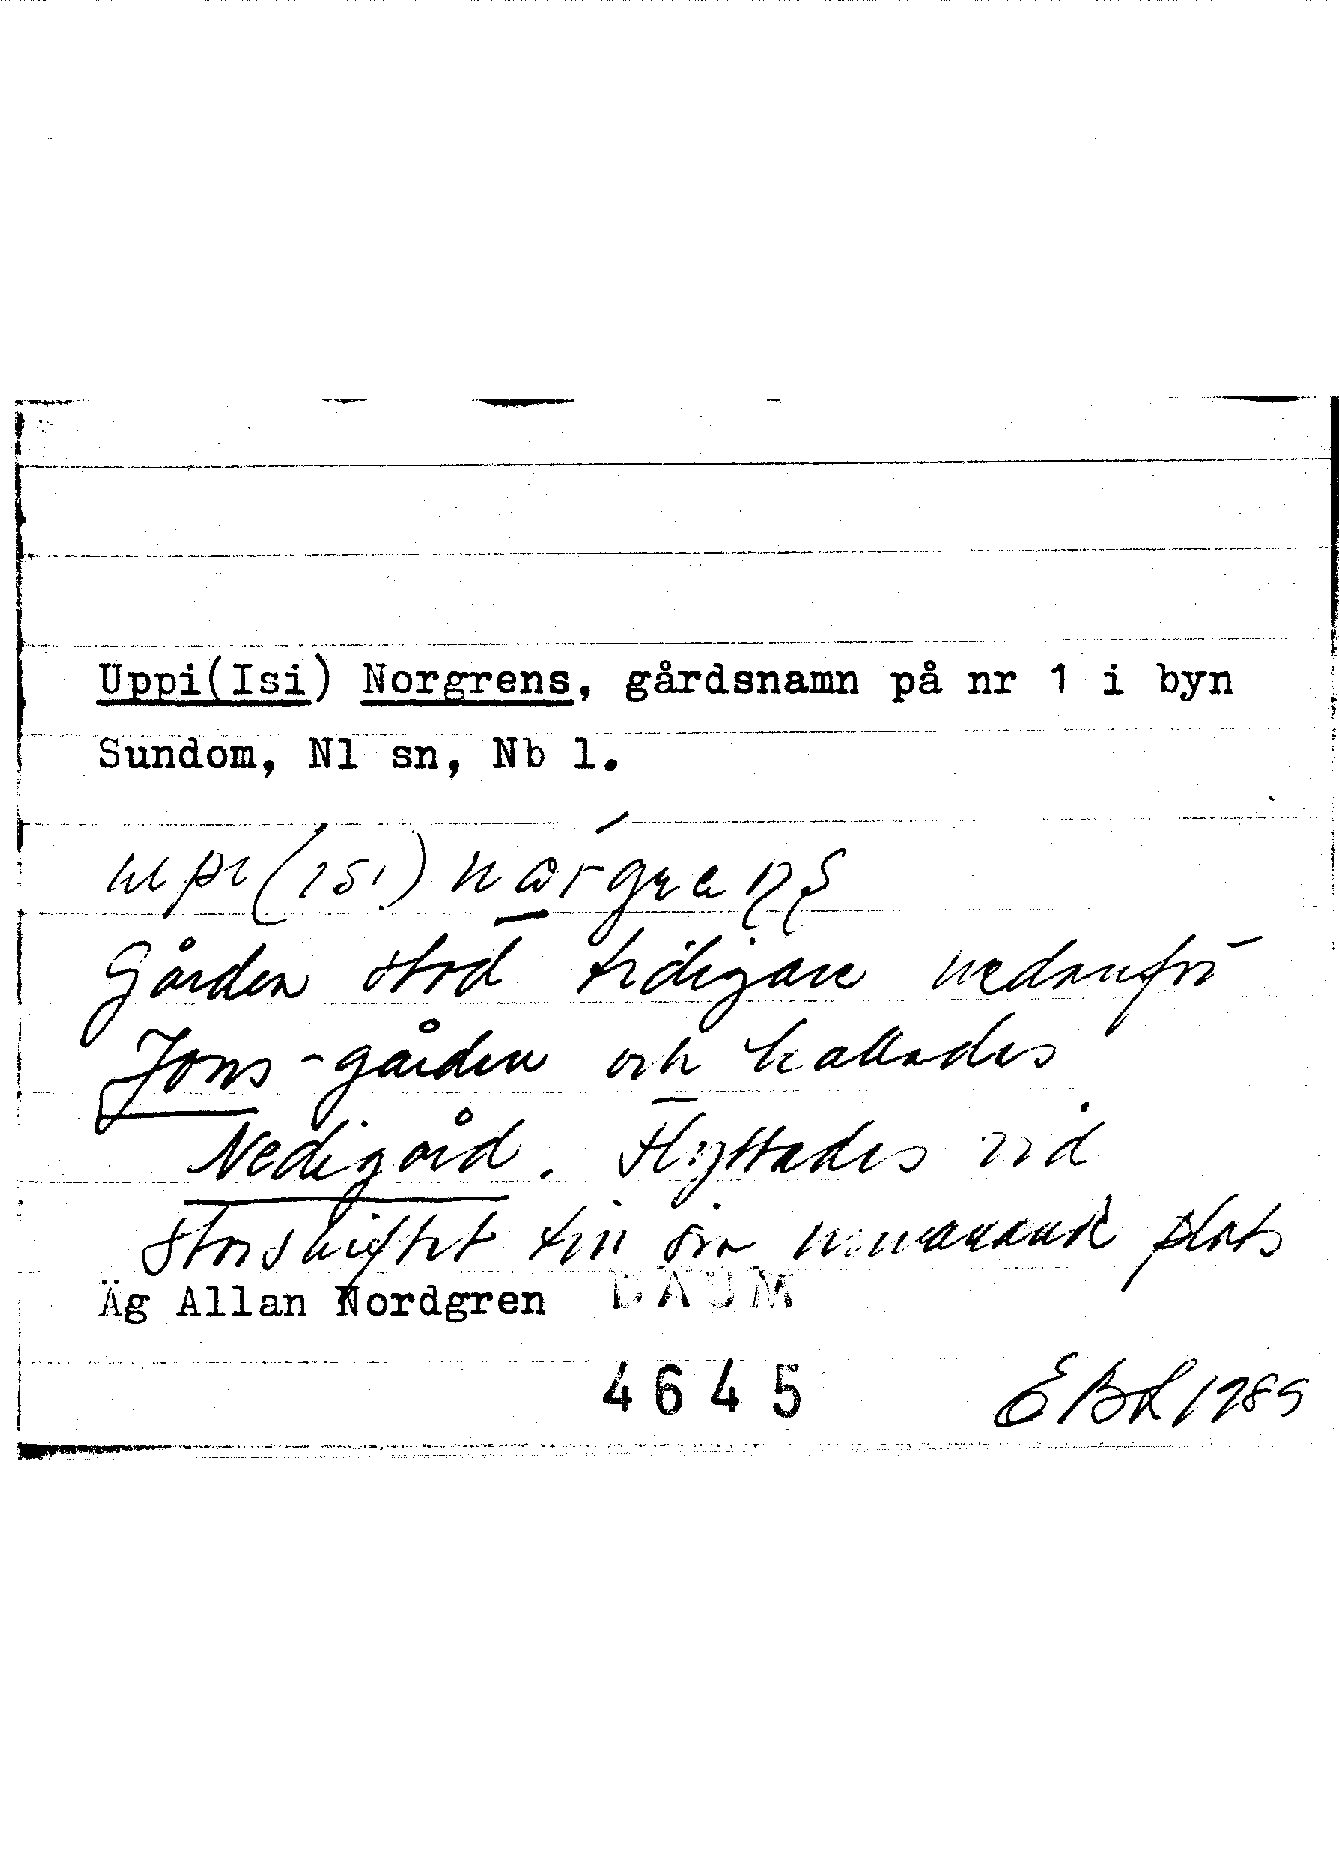 Uppi(Isi) Norgrens, gårdsnamn på nr 1 i byn
Sundom, Nl sn, Nb l.
Gården stod tidigare nedanför
Jons-gården och kallades
Nedigård. Flyttades vid
storskiftet till sin nuvarande plats
Äg Allan Nordgren DAUM
4645 EBL 1985